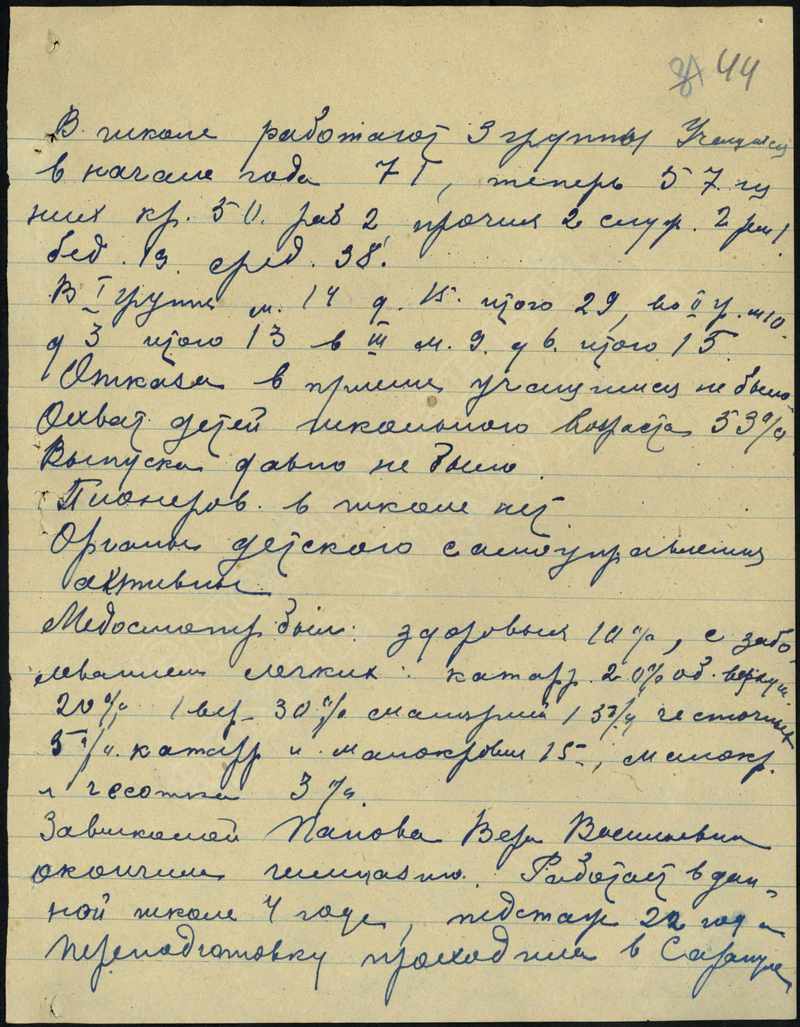 44
В школе работают 3 группы Учащихся
в начале года 71, теперь 57. из
них кр. 50. раб 2, прочих 2 служ. 2 рем 1
бед. 19. сред. 38.
В I группе м. 14 д. 15. итого 29, во II гр. м 10.
д 3 итого 13 в III м. 9. д 6. итого 15.
Отказа в приеме учащимся не было
Охват детей школьного возраста 53%
Выпуска давно не было.
Пионеров в школе нет
Органы детского самоуправления
активны
Медосмотр был: здоровых 10%, с забо
леванием легких: катарр. 20% об. верхуш.
20% 1 вер. 30% малярией 13% чесоточных
5%. катарр и малокровия 15, малокр.
и чесотка 3%.
Завшколой Папова Вера Васильевна
окончила гимназию. Работает в дан-
ной школе 4 года, педстаж 22 года
Переподготовку проходила в Сарапуле